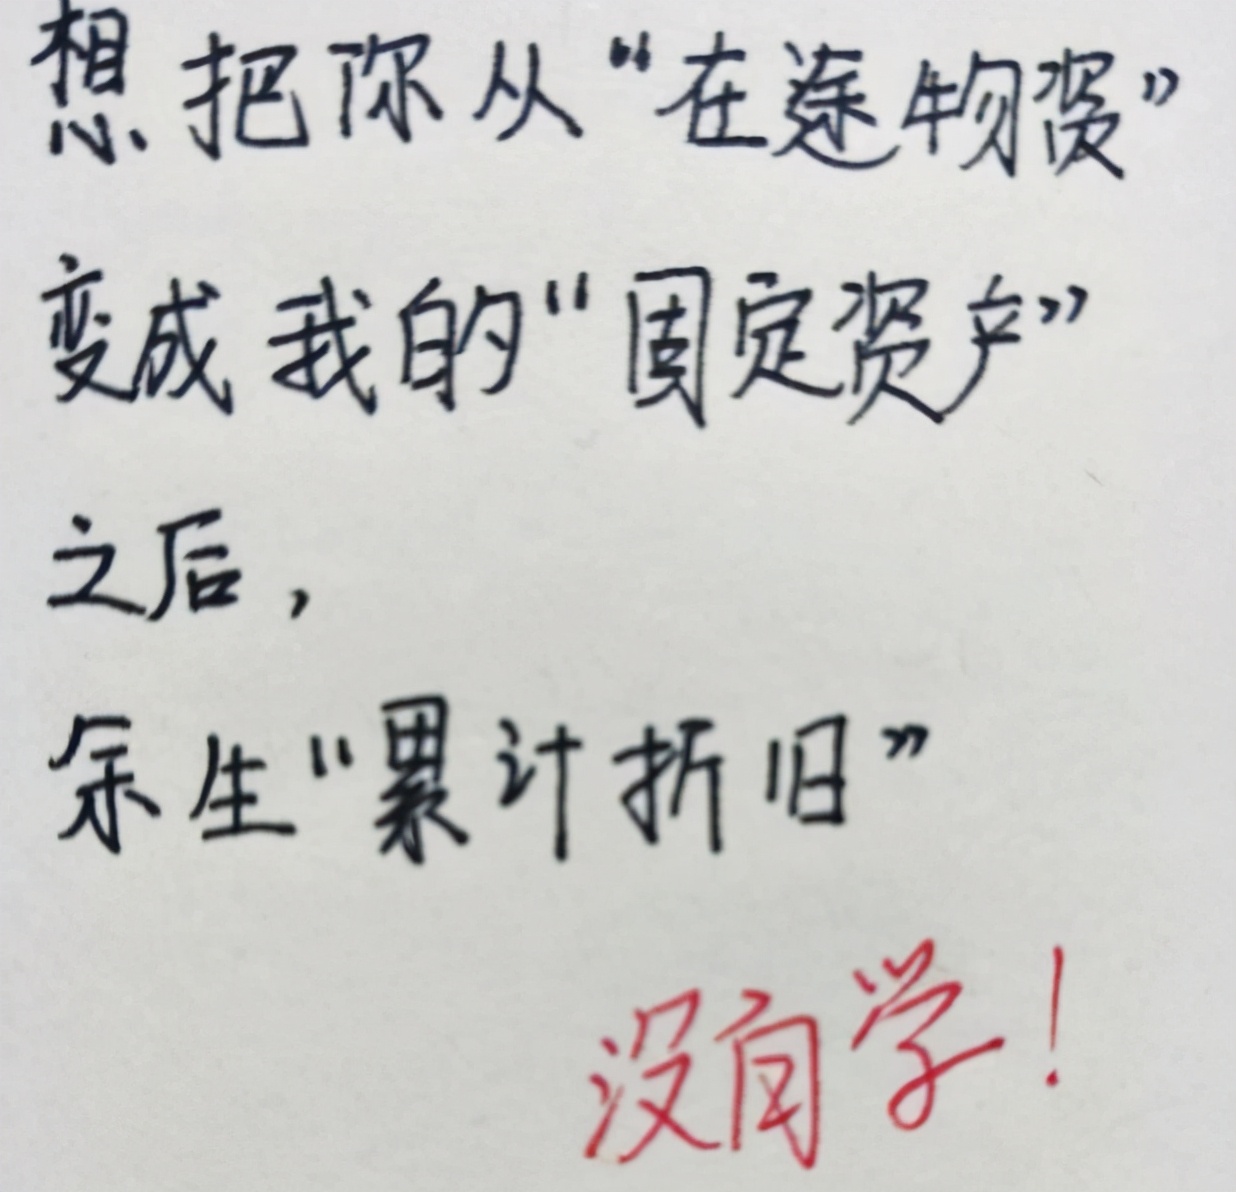 想把你从“在途物资”
变成我的“固定资产”
之后，
余生“累计折旧”
没有学！